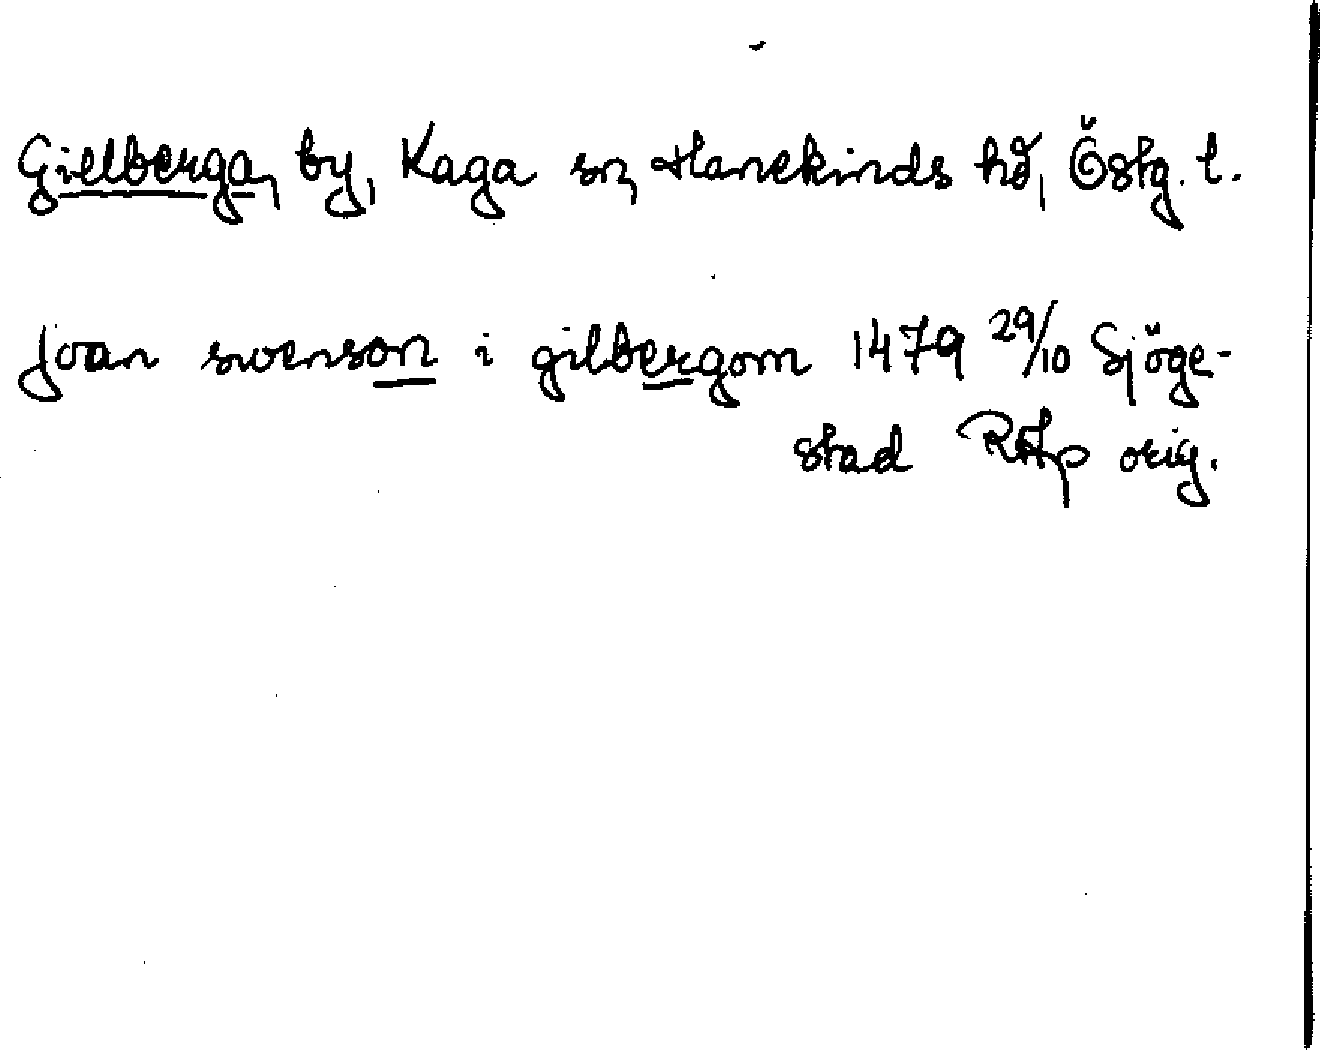 Gielberga, by, Kaga sn, Hanekinds hd, Östg. l.
joan swenson i gilbergom 1479 29/10 Sjöge-
stad RAp orig.